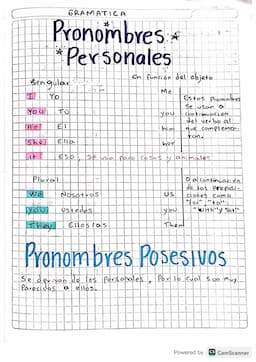 GRAMATICA
Pronombres
Personales
Singular
En función del objeto
I Yo
Me
You TU
you
He El
him
She Ella
her
it ESO, se usa para cosas y animales
Estos pronombres
se usan a
continuación
del verbo al
que complemen-
tan.
Plural
We Nosotros
US
you ustedes
you
They Ellos/as
Them
O a continuación
de las preposi-
ciones como
"for", "to",
"with" y "at"
Pronombres Posesivos
Se derivan de los personales, por lo cual son muy
parecidos a ellos.
Powered by CS CamScanner